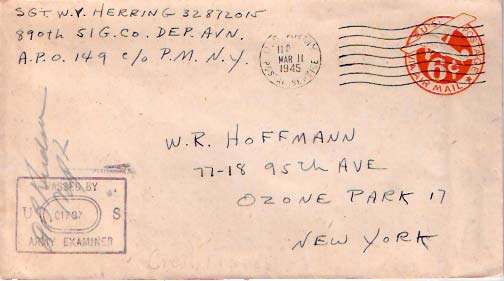 SGT. W.Y. HERRING 32872015
890th SIG. Co. DEP. AVN.
A.P.O. 149 c/o P.M. N.Y.
MAR 11
1945
POSTAL SERVICE
U.S. POSTAGE
6¢
VIA AIR MAIL
W.R. HOFFMANN
77-18 95th AVE
OZONE PARK 17
NEW YORK
PASSED BY
U S
ARMY EXAMINER